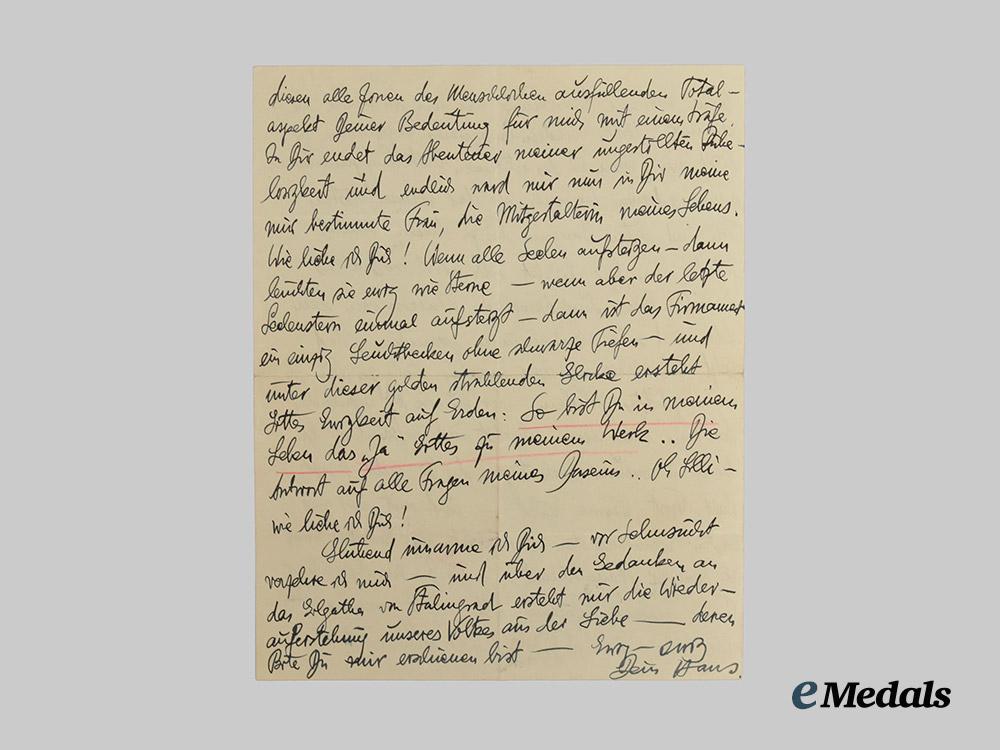 diesen alle Zonen des Menschlichen ausfüllenden Total-
aspekt Deiner Bedeutung für mich mit einem Schlage.
In Dir endet das Abenteuer meiner ungestillten Ruhe-
losigkeit und endlich ward mir nun in Dir meine
mir bestimmte Frau, die Mitgestalterin meines Lebens.
Wie liebe ich Dich! Wenn alle Seelen aufsteigen – dann
leuchten sie ewig wie Sterne – wenn aber der letzte
Seelenstern einmal aufsteigt – dann ist das Firmament
ein einzig Leuchtbecken ohne schwarze Tiefen – und
unter dieser golden strahlenden Glocke ersteht
Gottes Ewigkeit auf Erden: So bist Du in meinem
Leben das „Ja" Gottes zu meinem Werk .. Die
Antwort auf alle Fragen meines Daseins .. Oh Lilli –
wie liebe ich Dich!
Glühend umarme ich Dich – vor Sehnsucht
verzehre ich mich – und über den Gedanken an
das Golgatha von Stalingrad ersteht mir die Wieder-
auferstehung unseres Volkes aus der Liebe – deren
Bote Du mir erschienen bist – Ewig – ewig
Dein Hans.
eMedals